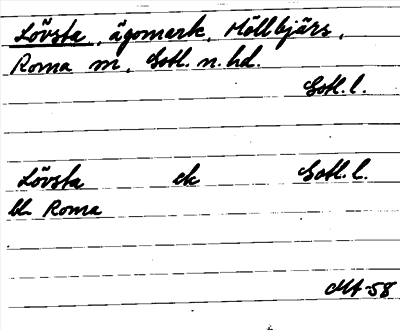 Lövsta, ägomark, Möllbjärs,
Roma sn, Gotl. n. hd.
Gotl. l.
Lövsta ek Gotl. l.
bl. Roma